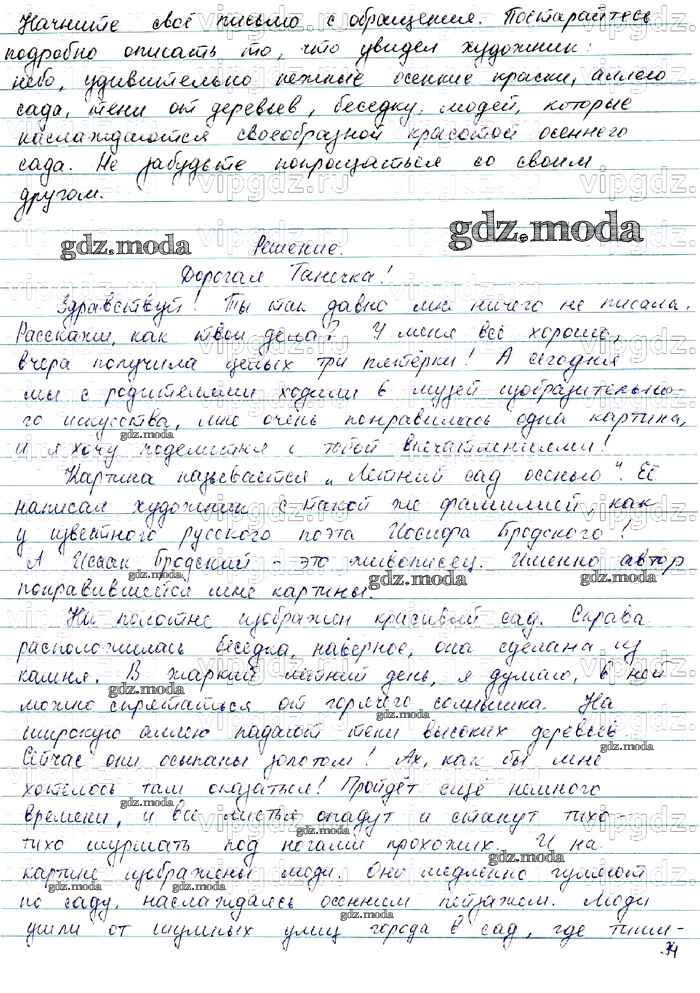 Начните своё письмо с обращения. Постарайтесь
подробно описать то, что увидел художник:
небо, удивительно нежные осенние краски, аллею
сада, тени от деревьев, беседку, людей, которые
наслаждаются своеобразной красотой осеннего
сада. Не забудьте попрощаться со своим
другом.
Решение.
Дорогая Танечка!
Здравствуй! Ты так давно мне ничего не писала.
Расскажи, как твои дела? У меня всё хорошо,
вчера получила целых три пятёрки! А сегодня
мы с родителями ходили в музей изобразительно-
го искусства, мне очень понравилась одна картина,
и я хочу поделиться с тобой впечатлениями!
Картина называется „Летний сад осенью". Её
написал художник с такой же фамилией, как
у известного русского поэта Иосифа Бродского!
А Исаак Бродский - это живописец. Именно автор
понравившейся мне картины.
На полотне изображён красивый сад. Справа
расположилась беседка, наверное, она сделана из
камня. В жаркий летний день, я думаю, в ней
можно спрятаться от горячего солнышка. На
широкую аллею падают тени высоких деревьев.
Сейчас они осыпаны золотом! Ах, как бы мне
хотелось там оказаться! Пройдёт ещё немного
времени, и все листья опадут и станут тихо-
тихо шуршать под ногами прохожих. И на
картине изображены люди. Они медленно гуляют
по саду, наслаждаясь осенним пейзажем. Люди
ушли от шумных улиц города в сад, где тиши-
gdz.moda
vipgdz.ru